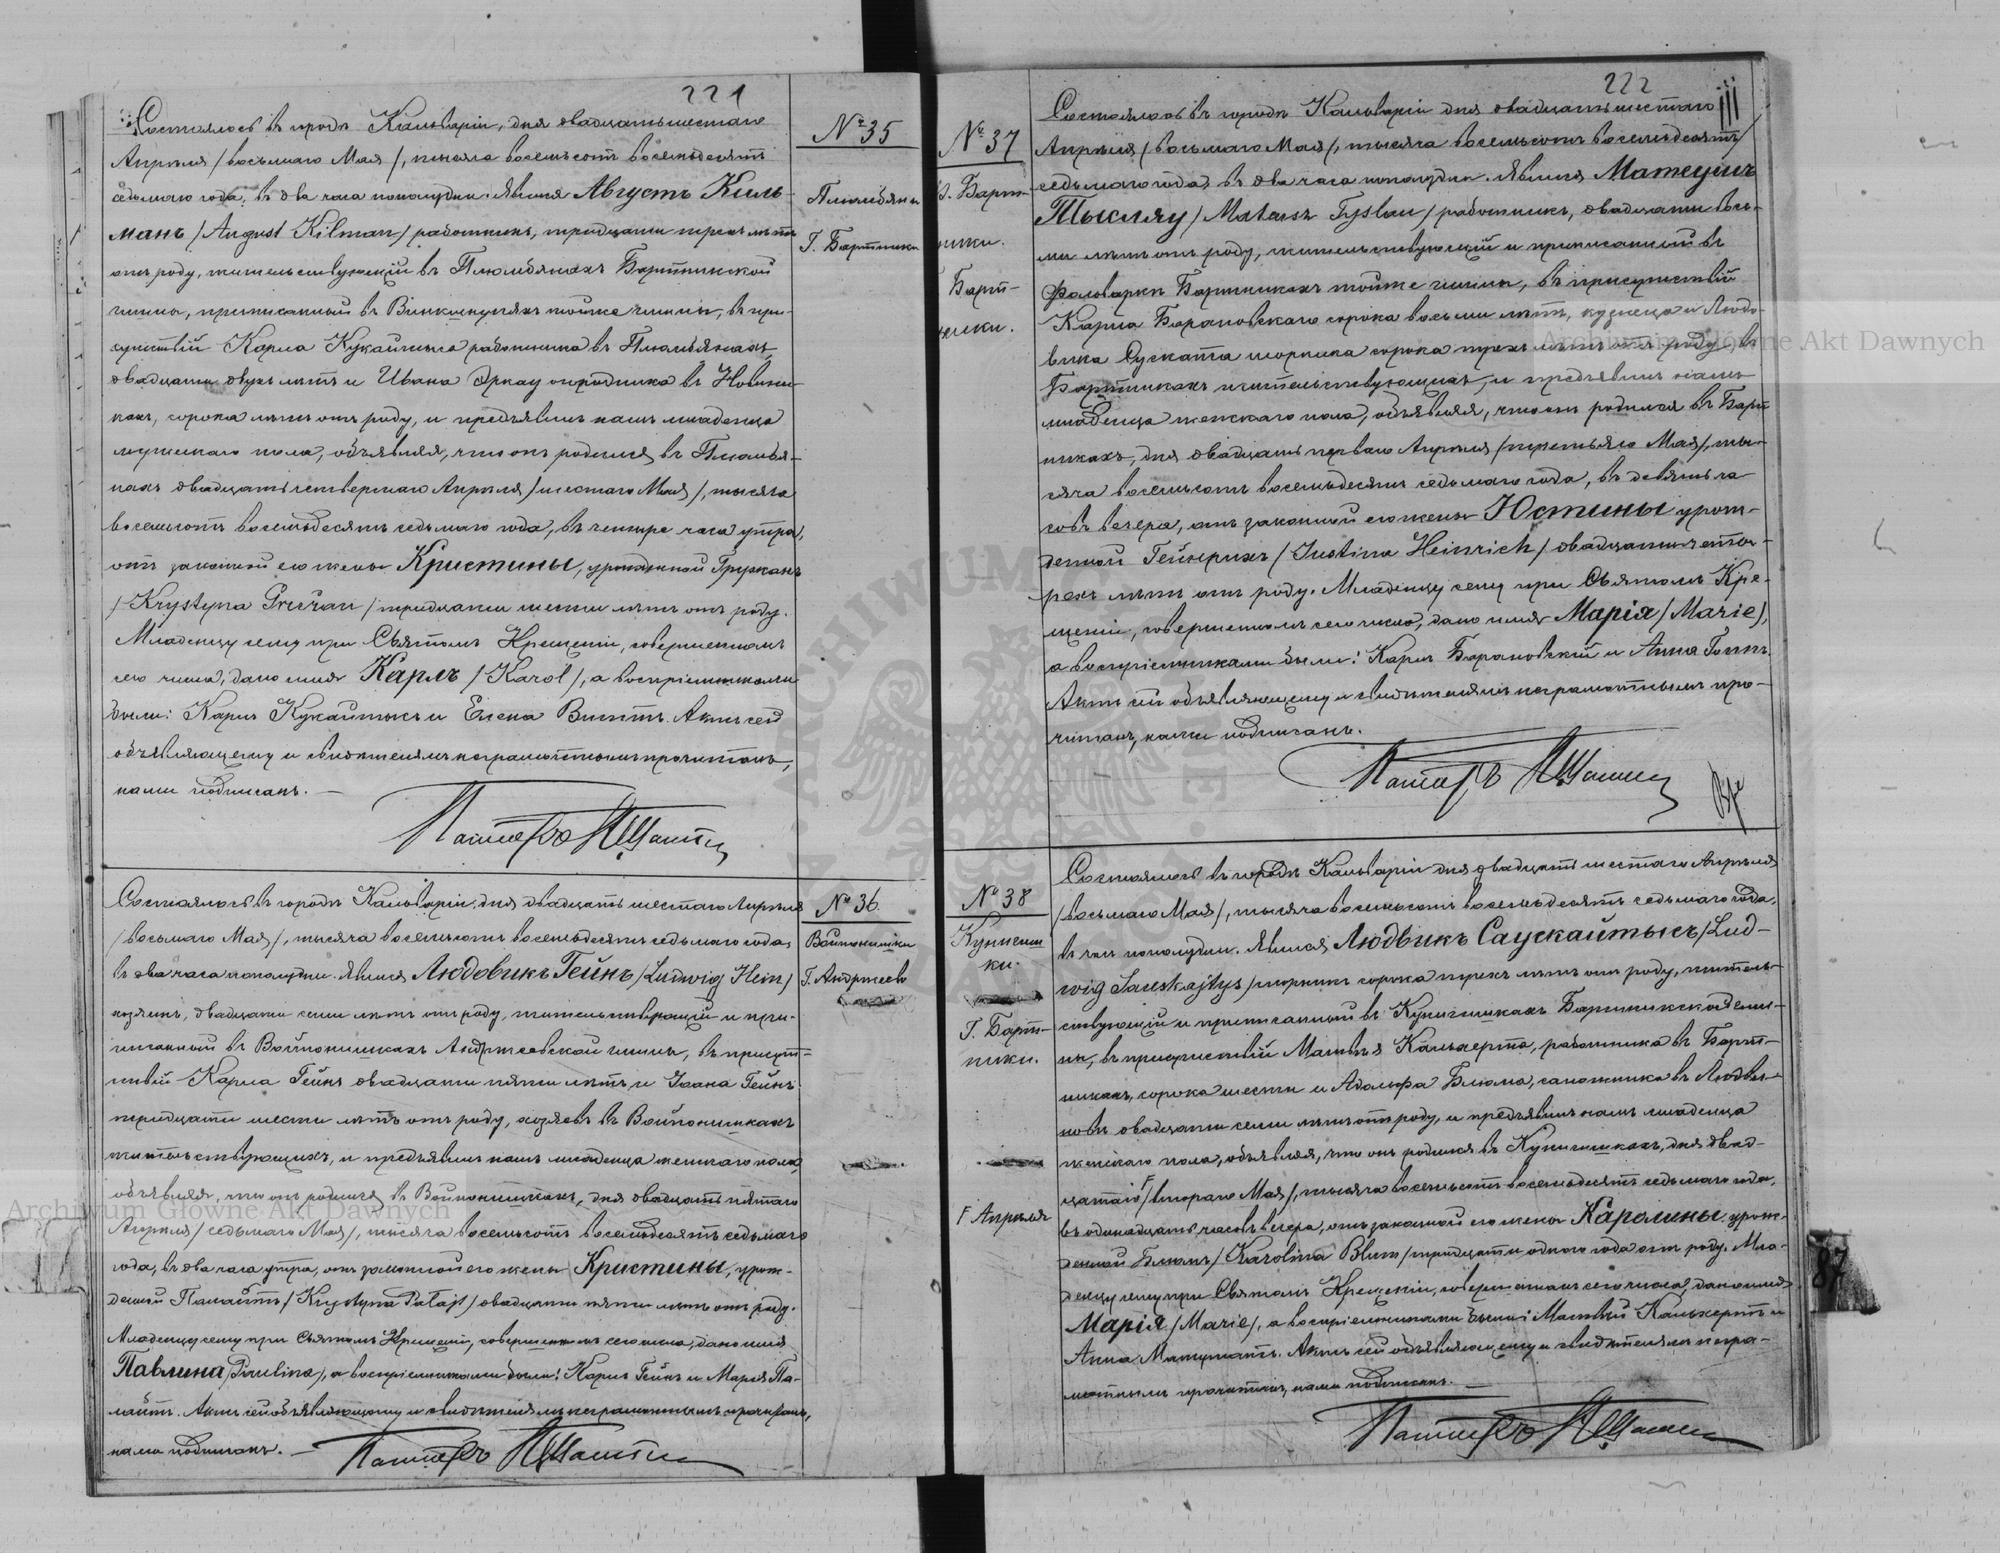 221
Состоялось въ городѣ Кальваріи, дня двадцать шестаго
Апрѣля / восьмаго Мая /, тысяча восемьсотъ восемьдесятъ
седьмаго года, въ два часа пополудни. Явился Августъ Киль-
манъ / August Kilman / работникъ, тридцати трехъ лѣтъ
отъ роду, жительствующій въ Плюмбянахъ Бартникской
гмины, приписанный въ тойже гмины, въ при-
сутствіи Карла Кукайтыса работника въ Плюмбянахъ,
двадцати двухъ лѣтъ и Ивана Эркау огродника въ Новини-
кахъ, сорока лѣтъ отъ роду, и предъявилъ намъ младенца
мужескаго пола, объявляя, что онъ родился въ Плюмбя-
нахъ двадцать четвертаго Апрѣля / шестаго Мая /, тысяча
восемьсотъ восемьдесятъ седьмаго года, въ четыре часа утра,
отъ законной его жены Кристины, урожденной Гружанъ
/ Krystyna Gružan / тридцати шести лѣтъ отъ роду.
Младенцу сему при Святомъ Крещеніи, совершенномъ
сего числа, дано имя Карлъ / Karol /, а воспріемниками
были: Карлъ Кукайтысъ и Елена Виттъ. Актъ сей
объявляющему и свидѣтелямъ неграмотнымъ прочитанъ,
нами подписанъ. —
Пасторъ
№ 35
Плюмбяны
Г. Бартники
Состоялось въ городѣ Кальваріи, дня двадцать шестаго Апрѣля
/ восьмаго Мая /, тысяча восемьсотъ восемьдесятъ седьмаго года,
въ два часа пополудни. Явился Людовикъ Гейнъ / Ludwig Hein /
хозяинъ, двадцати семи лѣтъ отъ роду, жительствующій и при-
писанный въ Войпонишкахъ Андржеевской гмины, въ присут-
ствіи Карла Гейнъ двадцати пяти лѣтъ, и Іоана Гейнъ
тридцати шести лѣтъ отъ роду, хозяевъ въ Войпонишкахъ
жительствующихъ, и предъявилъ намъ младенца женскаго пола,
объявляя, что онъ родился въ Войпонишкахъ, дня двадцать пятаго
Апрѣля / седьмаго Мая /, тысяча восемьсотъ восемьдесятъ седьмаго
года, въ два часа утра, отъ законной его жены Кристины, урож-
денной Палайтъ / Krystyna Palajt / двадцати пяти лѣтъ отъ роду.
Младенцу сему при Святомъ Крещеніи, совершенномъ сего числа, дано имя
Павлина / Paulina /, а воспріемниками были: Карлъ Гейнъ и Марія Па-
лайтъ. Актъ сей объявляющему и свидѣтелямъ неграмотнымъ прочитанъ,
нами подписанъ. —
Пасторъ
№ 36.
Войпонишки
Г. Андржеево
222
№ 37
Ф. Барт-
ники.
Г. Барт-
ники.
Состоялось въ городѣ Кальваріи дня двадцать шестаго
Апрѣля / восьмаго Мая /, тысяча восемьсотъ восемьдесятъ
седьмаго года, въ два часа пополудни. Явился Матеушъ
Тыслау / Mateusz Tyslau / работникъ, двадцати вось-
ми лѣтъ отъ роду, жительствующій и приписанный въ
Фольваркѣ Бартникахъ тойже гмины, въ присутствіи
Карла Барановскаго сорока восьми лѣтъ, кузнеца и Людо-
вика Суската шорника сорока трехъ лѣтъ отъ роду, въ
Бартникахъ жительствующихъ, и предъявилъ намъ
младенца женскаго пола, объявляя, что онъ родился въ Барт-
никахъ, дня двадцать перваго Апрѣля / третьяго Мая /, ты-
сяча восемьсотъ восемьдесятъ седьмаго года, въ девять ча-
совъ вечера, отъ законной его жены Юстины урож-
денной Гейнрихъ / Justina Heinrich / двадцати четы-
рехъ лѣтъ отъ роду. Младенцу сему при Святомъ Кре-
щеніи, совершенномъ сего числа, дано имя Марія / Marie /,
а воспріемниками были: Карлъ Барановскій и Анна
Актъ сей объявляющему и свидѣтелямъ неграмотнымъ про-
читанъ, нами подписанъ.
Пасторъ
№ 38
Г. Барт-
ники.
F Апрѣля
Состоялось въ городѣ Кальваріи дня двадцать шестаго Апрѣля
/ восьмаго Мая /, тысяча восемьсотъ восемьдесятъ седьмаго года,
въ часъ пополудни. Явился Людвикъ Саускайтысъ / Lud-
wig Sauskajtys / шорникъ сорока трехъ лѣтъ отъ роду, житель-
ствующій и приписанный въ Бартникской гми-
ны, въ присутствіи Матвѣя Кальхерта, работника въ Барт-
никахъ, сорока шести и Адольфа Блюма, сапожника въ Людви-
новѣ двадцати семи лѣтъ отъ роду, и предъявилъ намъ младенца
женскаго пола, объявляя, что онъ родился въ дня двад-
цатаго F / втораго Мая /, тысяча восемьсотъ восемьдесятъ седьмаго года,
въ одинадцать часовъ вечера, отъ законной его жены Каролины урож-
денной Блюмъ / Karolina Blum / тридцати одного года отъ роду. Мла-
денцу сему при Святомъ Крещеніи, совершенномъ сего числа, дано имя
Марія / Marie /, а воспріемниками были: Матвѣй Кальхертъ и
Анна Актъ сей объявляющему и свидѣтелямъ негра-
мотнымъ прочитанъ, нами подписанъ. —
Пасторъ
87
Archiwum Główne Akt Dawnych
Archiwum Główne Akt Dawnych